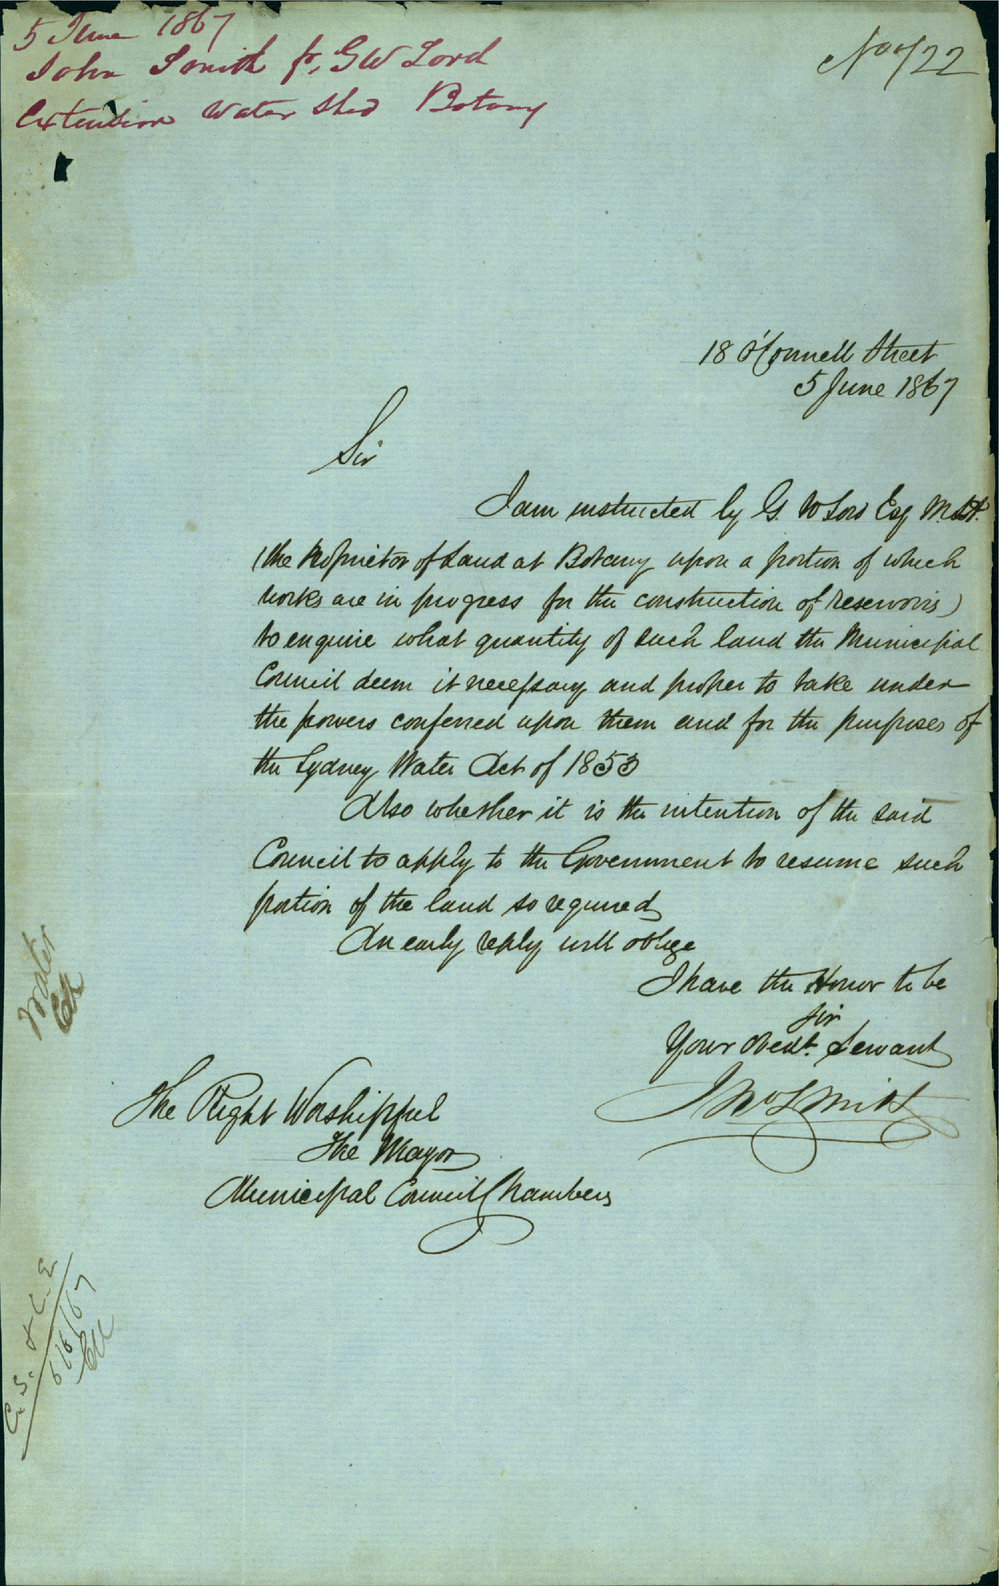 5 June 1867
John Smith fr. G W Lord
Extension Water Shed Botany
No 722
18 O'Connell Street
5 June 1867
Sir
I am instructed by G. W Lord Esq M.L.A.
(the Proprietor of Land at Botany upon a portion of which
works are in progress for the construction of reservoirs)
to enquire what quantity of such land the Municipal
Council deem it necessary and proper to take under
the powers conferred upon them and for the purposes of
the Sydney Water Act of 1853
Also whether it is the intention of the said
Council to apply to the Government to resume such
portion of the land so required
An early reply will oblige
I have the Honor to be
Sir
Your Obedt. Servant
Jno Smith
The Right Worshipful
The Mayor
Municipal Council Chambers
Water
C.S. & C.E
6/6/67